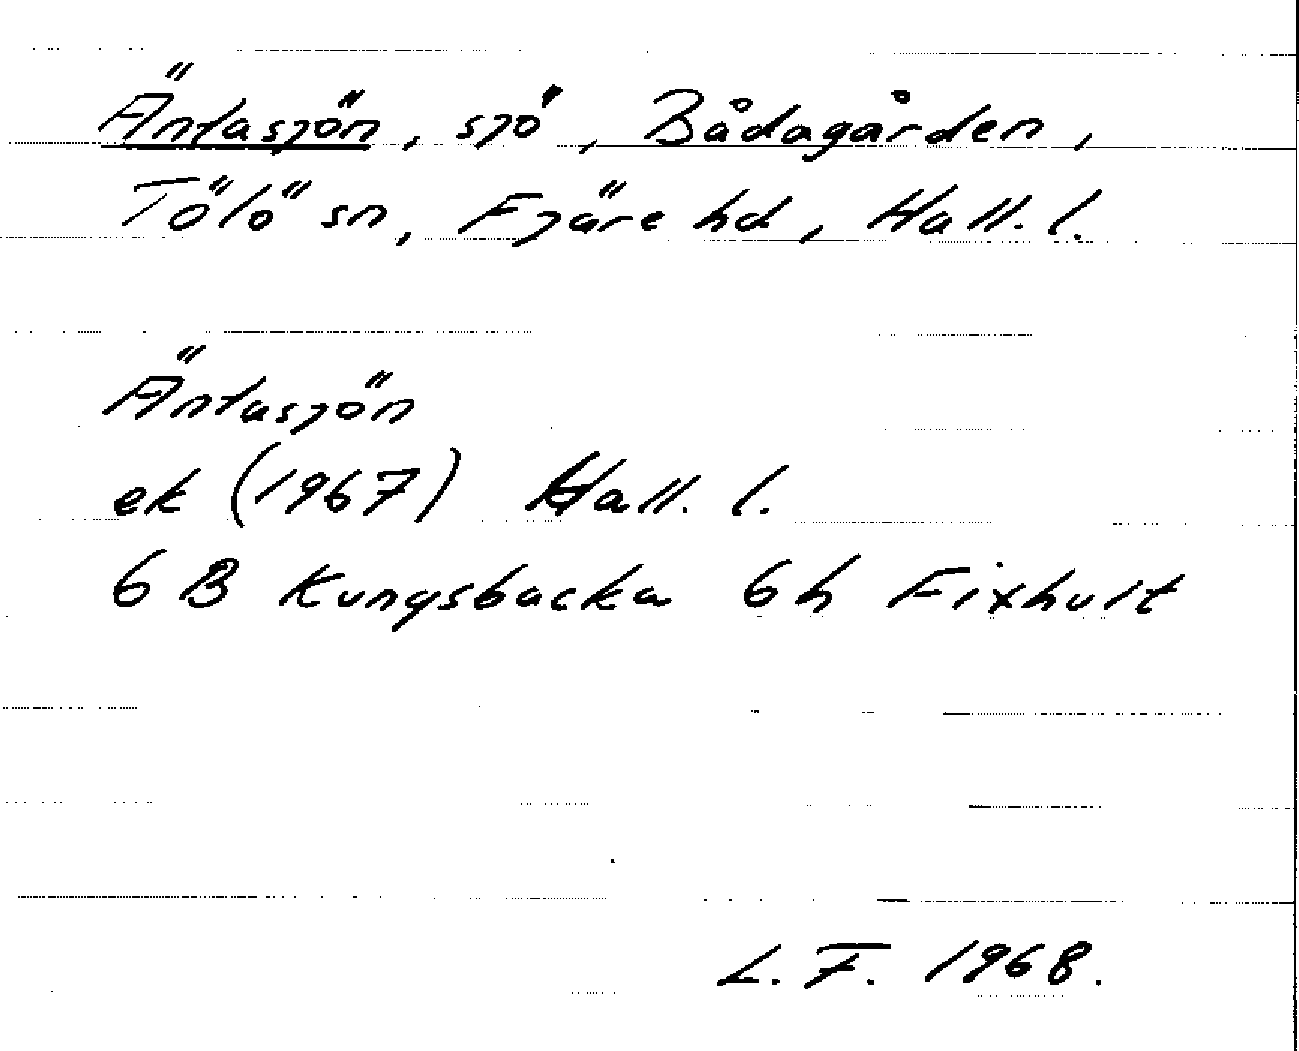 Äntasjön, sjö, Bådagården,
Tölö sn, Fjäre hd, Hall. l.
Äntasjön
ek (1967) Hall. l.
6 B Kungsbacka 6 h Fixhult
L. F. 1968.